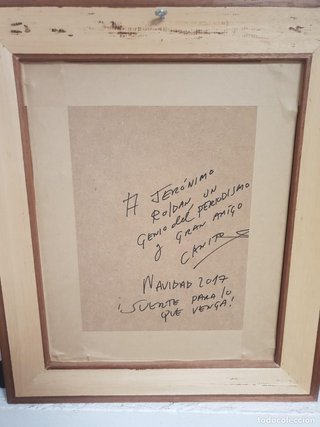 A JERÓNIMO
ROLDAN, UN
GENIO del PERIODISMO
y GRAN AMIGO
CANITO
NAVIDAD 2017
¡SUERTE PARA lo
QUE VENGA!
todocoleccion